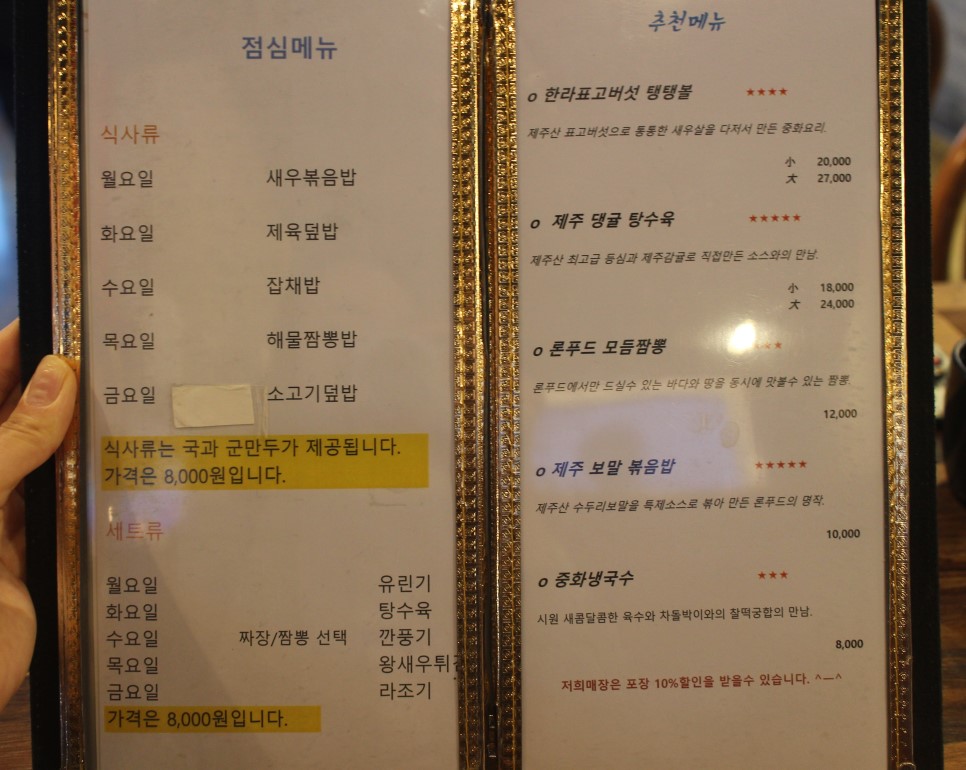 점심메뉴
식사류
월요일 새우볶음밥
화요일 제육덮밥
수요일 잡채밥
목요일 해물짬뽕밥
금요일 소고기덮밥
식사류는 국과 군만두가 제공됩니다.
가격은 8,000원입니다.
세트류
월요일 유린기
화요일 탕수육
수요일 짜장/짬뽕 선택 깐풍기
목요일 왕새우튀김
금요일 라조기
가격은 8,000원입니다.
추천메뉴
o 한라표고버섯 탱탱볼 ★★★★
제주산 표고버섯으로 통통한 새우살을 다져서 만든 중화요리.
小 20,000
大 27,000
o 제주 댕귤 탕수육 ★★★★★
제주산 최고급 등심과 제주감귤로 직접만든 소스와의 만남.
小 18,000
大 24,000
o 론푸드 모듬짬뽕 ★★★
론푸드에서만 드실수 있는 바다와 땅을 동시에 맛볼수 있는 짬뽕.
12,000
o 제주 보말 볶음밥 ★★★★★
제주산 수두리보말을 특제소스로 볶아 만든 론푸드의 명작.
10,000
o 중화냉국수 ★★★
시원 새콤달콤한 육수와 차돌박이와의 찰떡궁합의 만남.
8,000
저희매장은 포장 10%할인을 받을수 있습니다. ^ㅡ^